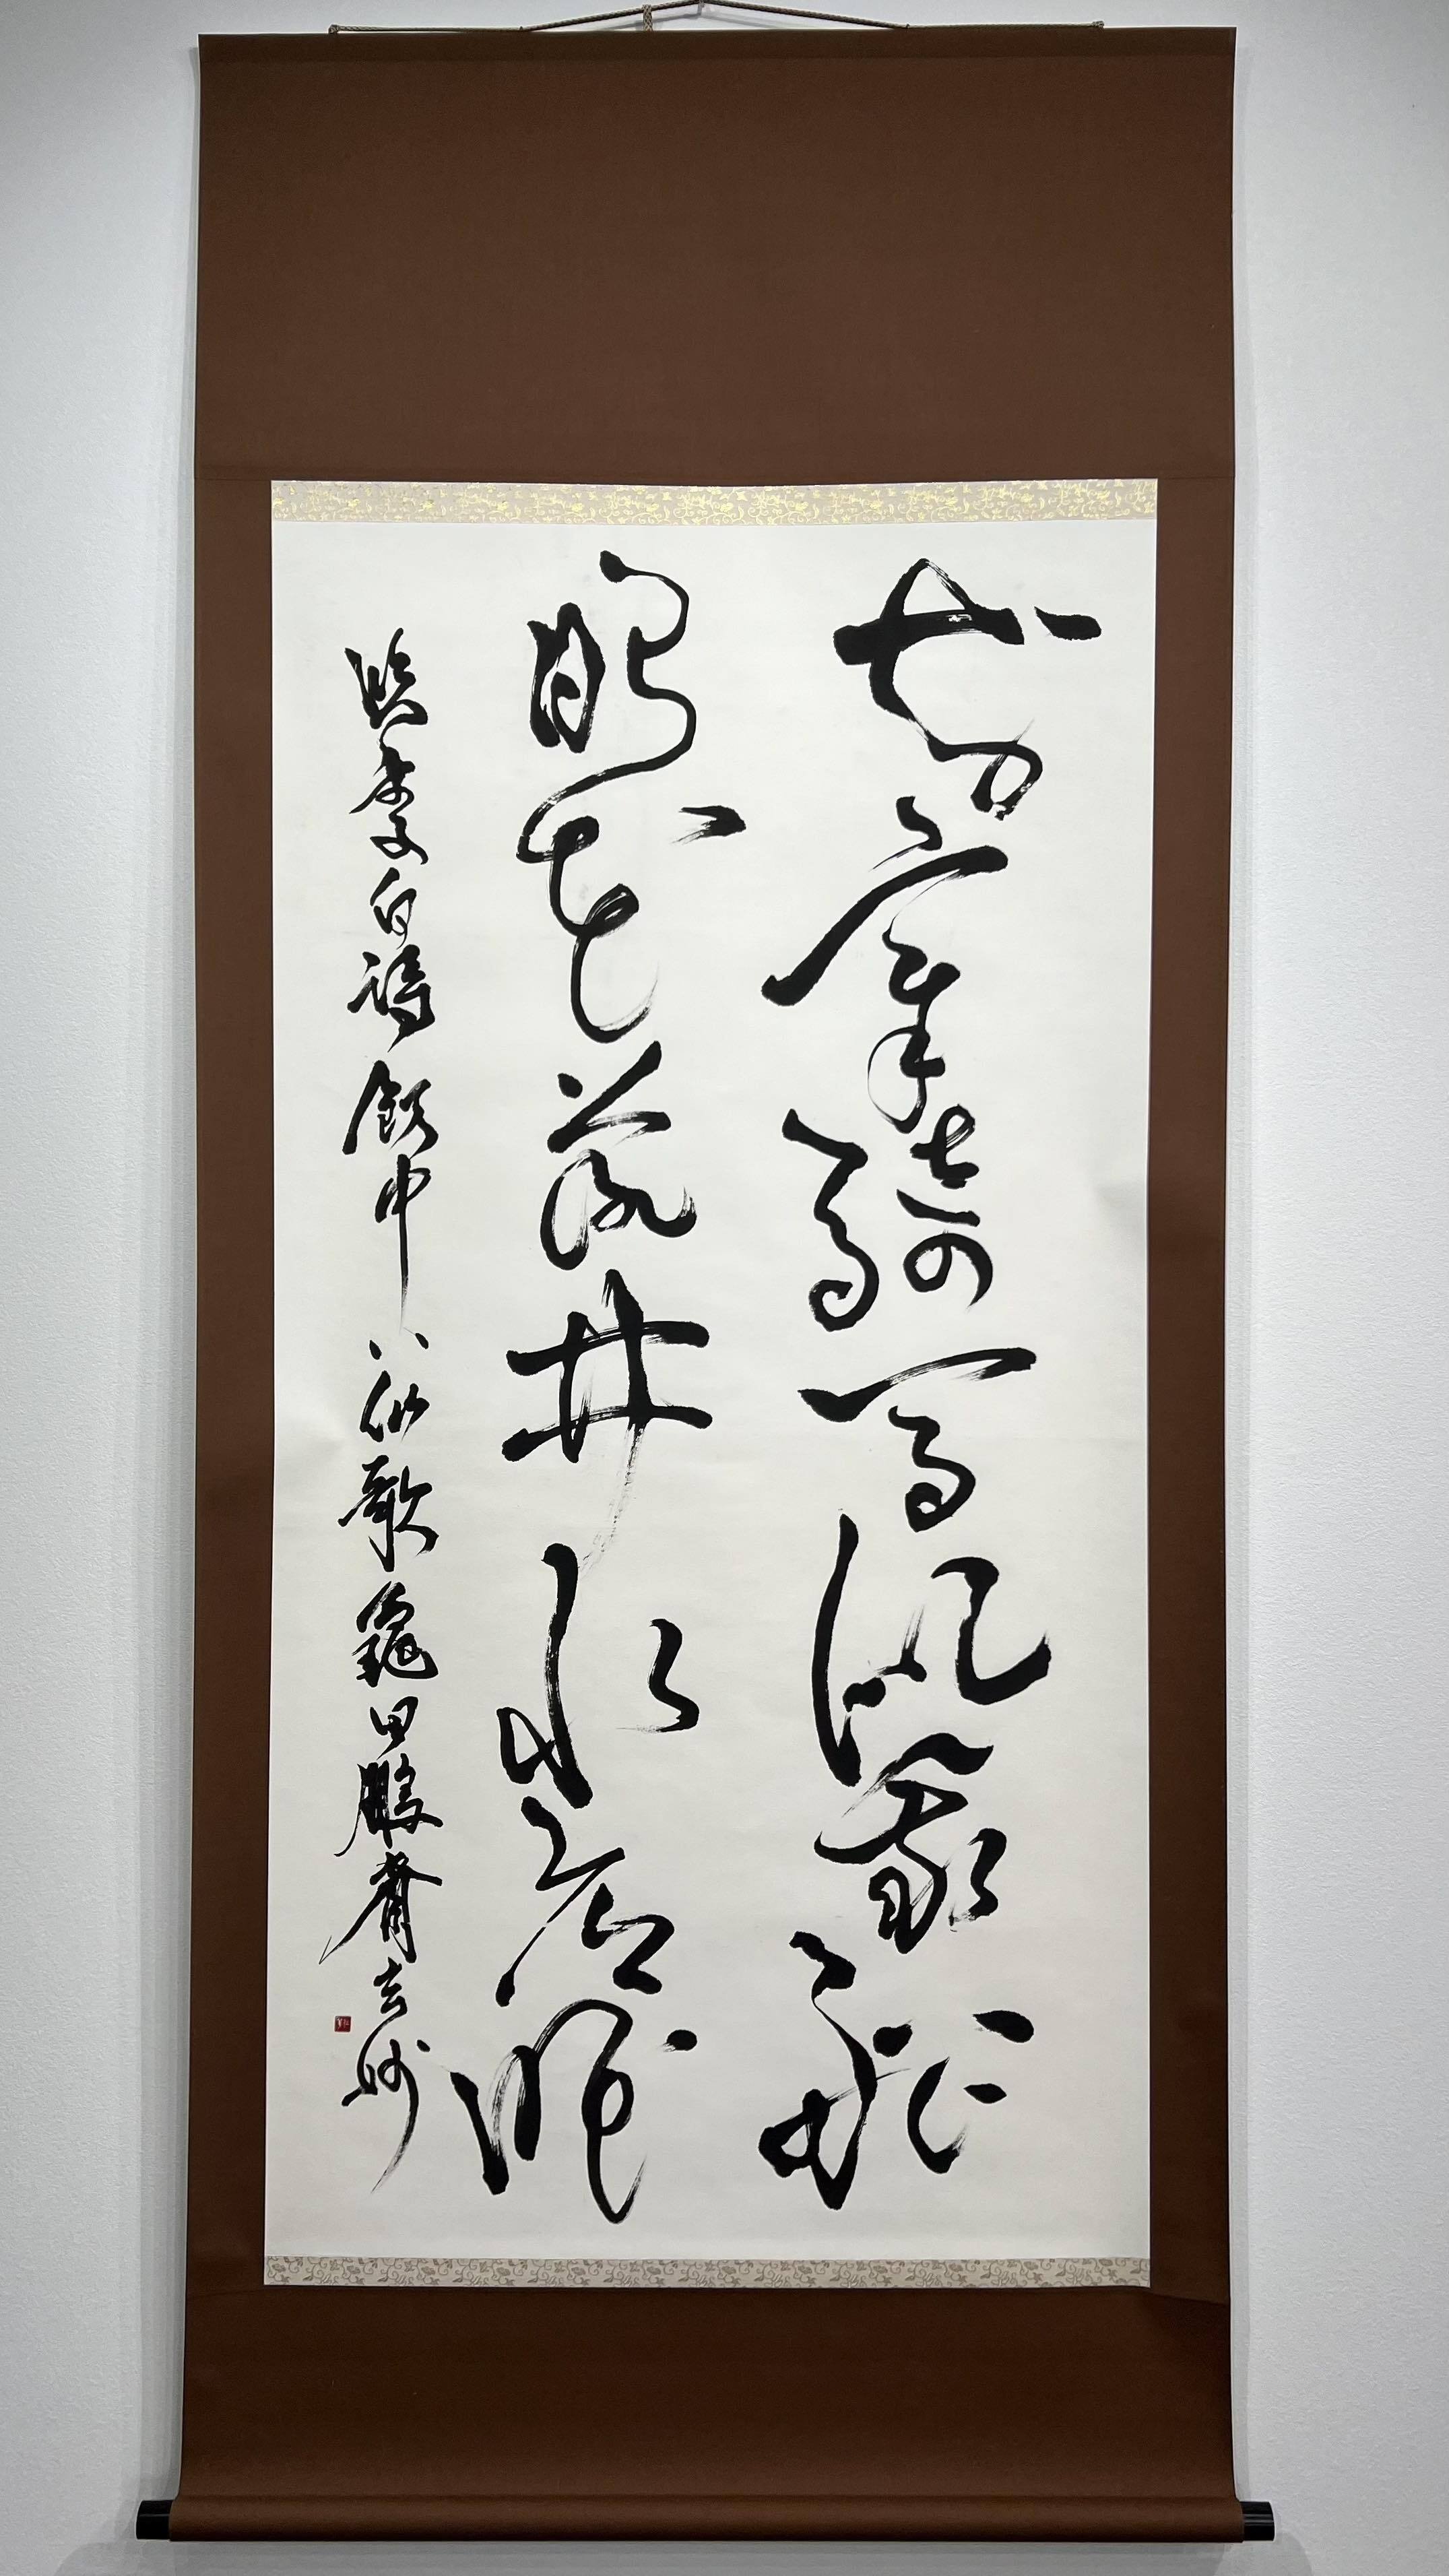 知章騎馬似乘船
眼花落井水底眠
臨李白詩飲中八仙歌龜田鵬齋玄妙